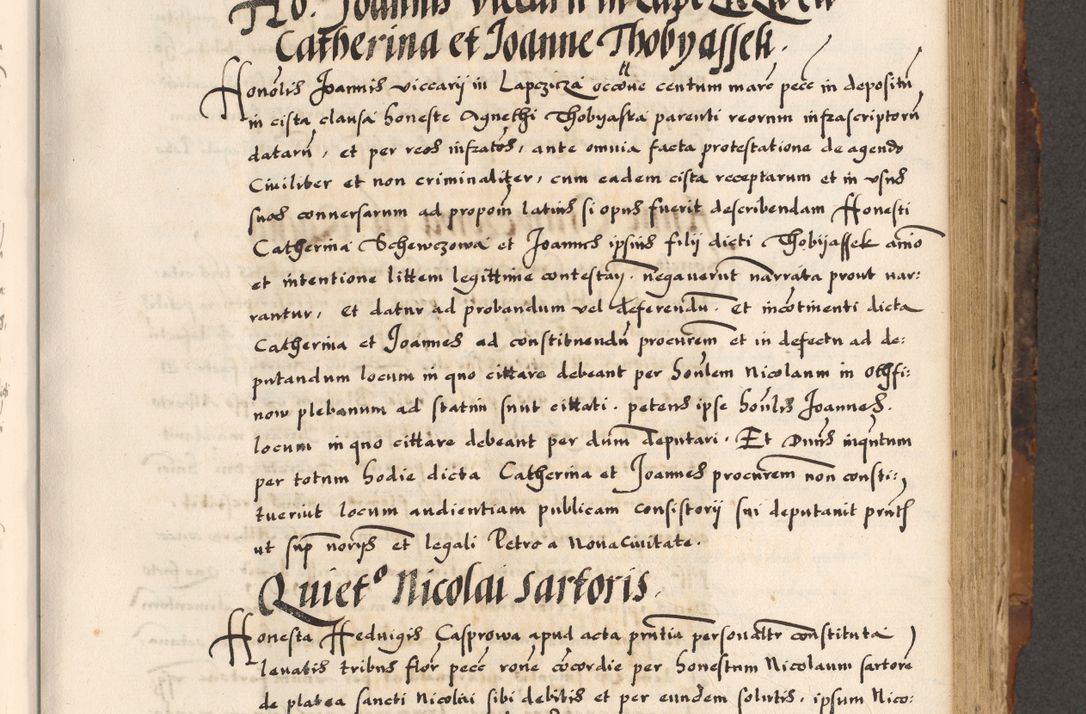 No. Joannis viccarii in Lapczicza cu
Catherina et Joanne Thobyassek.
Honolis Joannis viccarij in Lapczicza occoue centum marc pecc in depositu
in cista clausa honeste Agnethi Thobyaska parenti reorum infrascriptoru
dataru, et per reos infratos, ante omnia facta protestatione de agendo
Ciuiliter et non criminaliter, cum eadem cista receptarum et in vsus
suos conuersarum ad propoin latius si opus fuerit describendam Honesti
Catherina Schewczowa et Joannes ipsius filij dicti Thobijassek aino
et intentione littem legittime contestay. negauerut narrata prout nar:
rantur, et datur ad probandum vel deferendu. Et incotinenti dicta
Catherina et Joannes ad constituendu procurem et in defectu ad de:
putandum locum in quo cittare debeant per honlem Nicolaum in Othfi:
now plebanum ad statim sunt cittati. petens ipse honlis Joannes.
locum in quo cittare debeant per dum deputari. Et Duns inquntum
per totum hodie dicta Catherina et Joannes procurem non consti:
tuerint locum audientiam publicam consistorij sui deputauit pntes
ut sup norijs et legali Petro a Noua Ciuitate.
Quieto Nicolai sartoris.
Honesta Heduigis Casprowa apud acta pntia personaltr constituta
leuatis tribus flor pecc rone cocordie per honestum Nicolaum sartore
de platea sancti Nicolai sibi debitis et per eundem solutis, ipsum Nico: